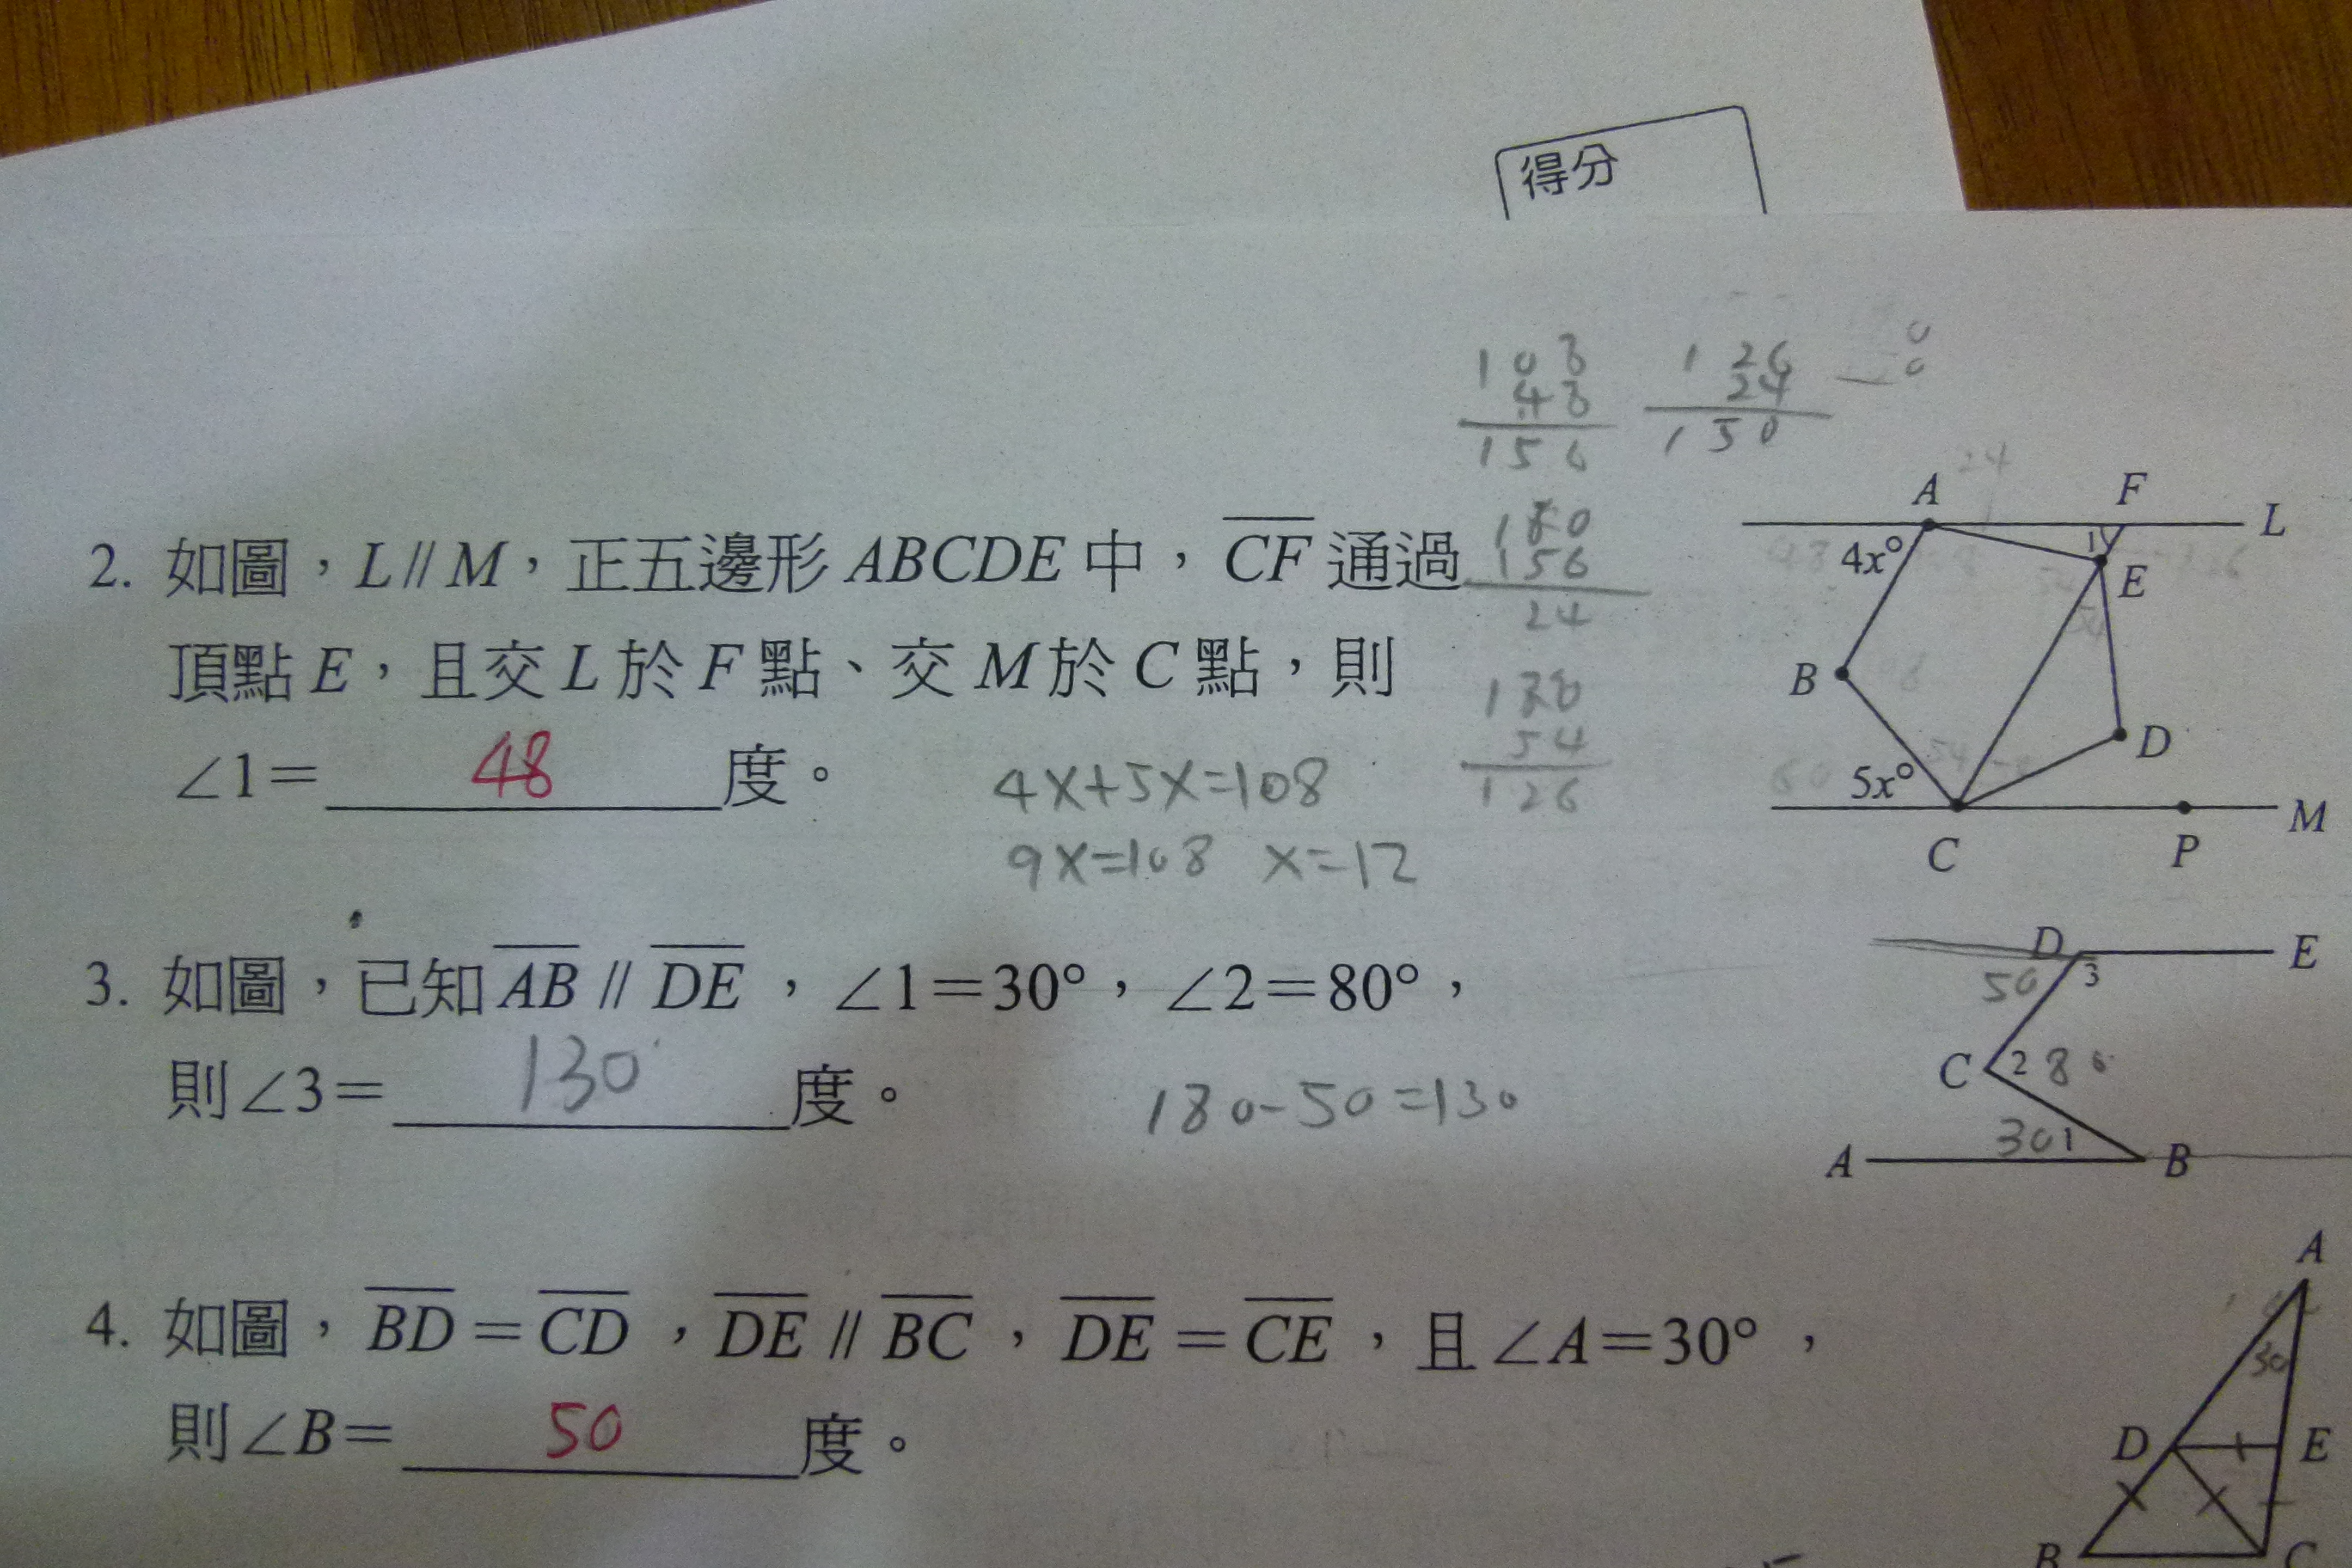 得分
108
48
156
126
24
150
2. 如圖，L // M，正五邊形 ABCDE 中，CF 通過
頂點 E，且交 L 於 F 點、交 M 於 C 點，則
∠1＝ 48 度。
180
156
24
180
54
126
4x+5x=108
9x=108 x=12
A F L
4x° 1 E
B
D
5x°
C P M
3. 如圖，已知 AB // DE，∠1＝30°，∠2＝80°，
則∠3＝ 130 度。
180-50=130
D E
50 3
C 2 80
30 1
A B
4. 如圖，BD＝CD，DE // BC，DE＝CE，且∠A＝30°，
則∠B＝ 50 度。
A
30
D E
B C